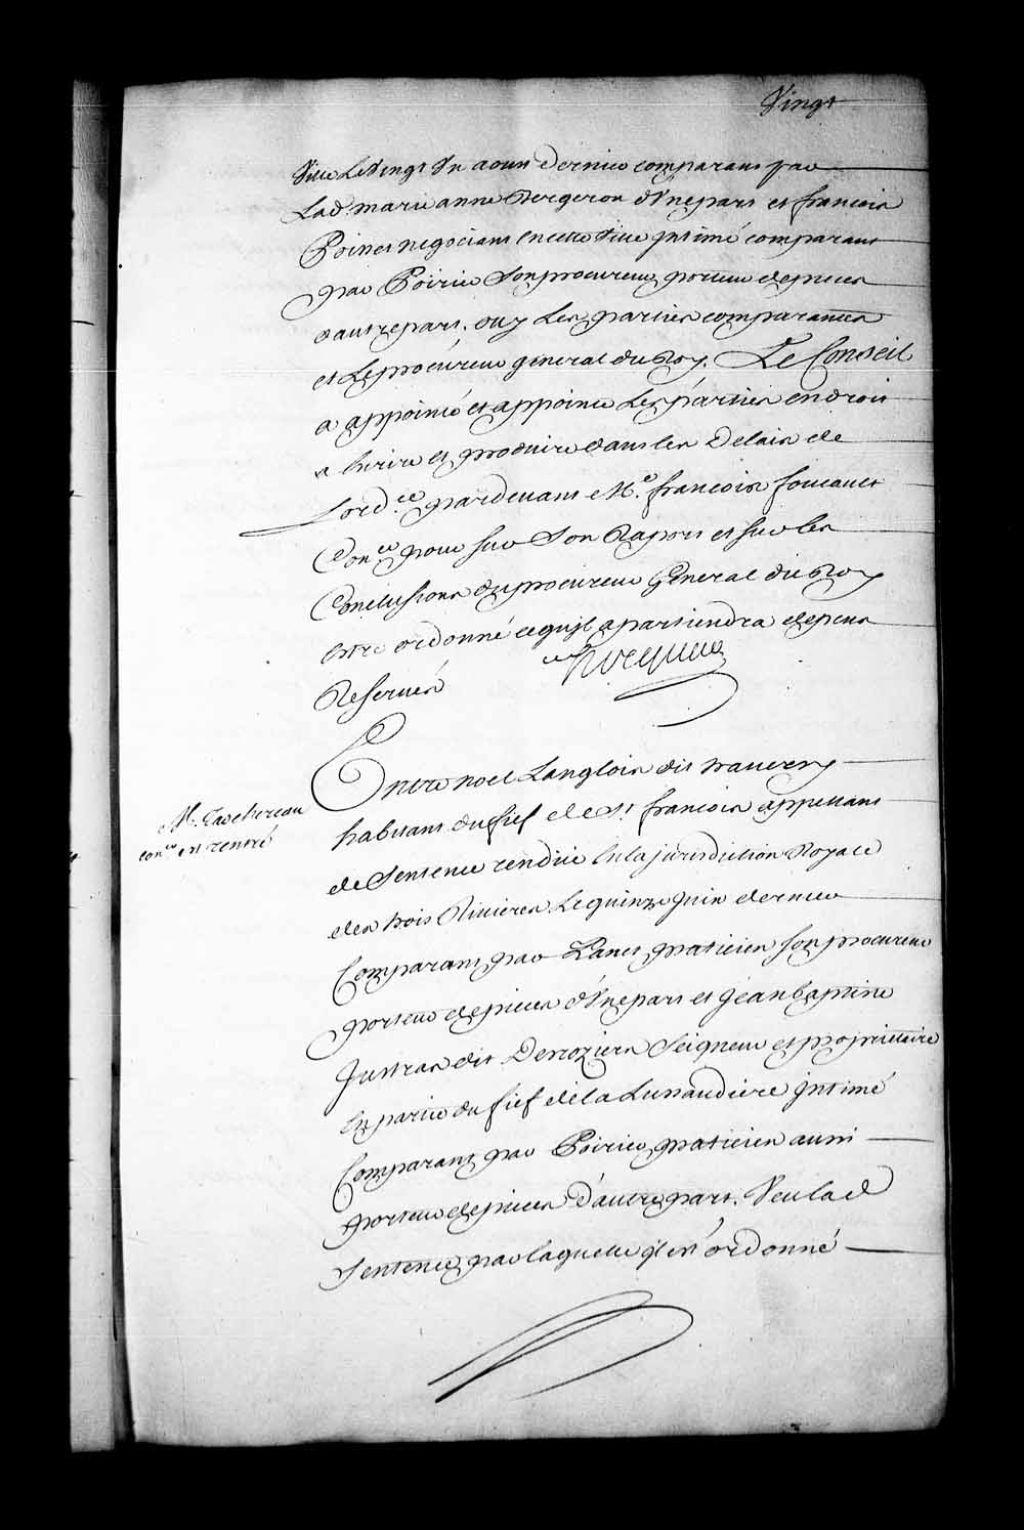 Vingt
Ville Le Vingt Un aoust dernier comparant par
Lad. marie anne Bergeron d'Une part et francois
Poinet negociant en cette Ville Intimé comparant
par Poirier Son procureur porteur de pieces
d'autre part. ouy Les parties comparantes
et Le procureur general du Roy. Le Conseil
a appointé et appointe Les parties en droit
a Ecrire et produire dans les Delais de
Lord.ce pardevant M.e francois foucault
Con.er pour sur Son Raport et sur les
Conclusions du procureur General du Roy
estre ordonné ce qu'jl apartiendra depens
Reservés
Hocquart
Entre noel Langlois dit traversy
habitant du fief de St. francois appellant
de Sentence rendüe En la jurisdiction Royale
des trois Rivieres Le quinze Juin dernier
Comparant par Lanet, praticien son procureur
porteur de pieces d'Une part et Jean baptiste
Jutras dit Desroziers Seigneur et proprietaire
En partie du fief de la Lussaudiere Intimé
Comparant par Poirier praticien aussi
porteur de pieces d'autre part. Veu lad
Sentence par laquelle il est ordonné
M. Taschereau
con.er est rentré